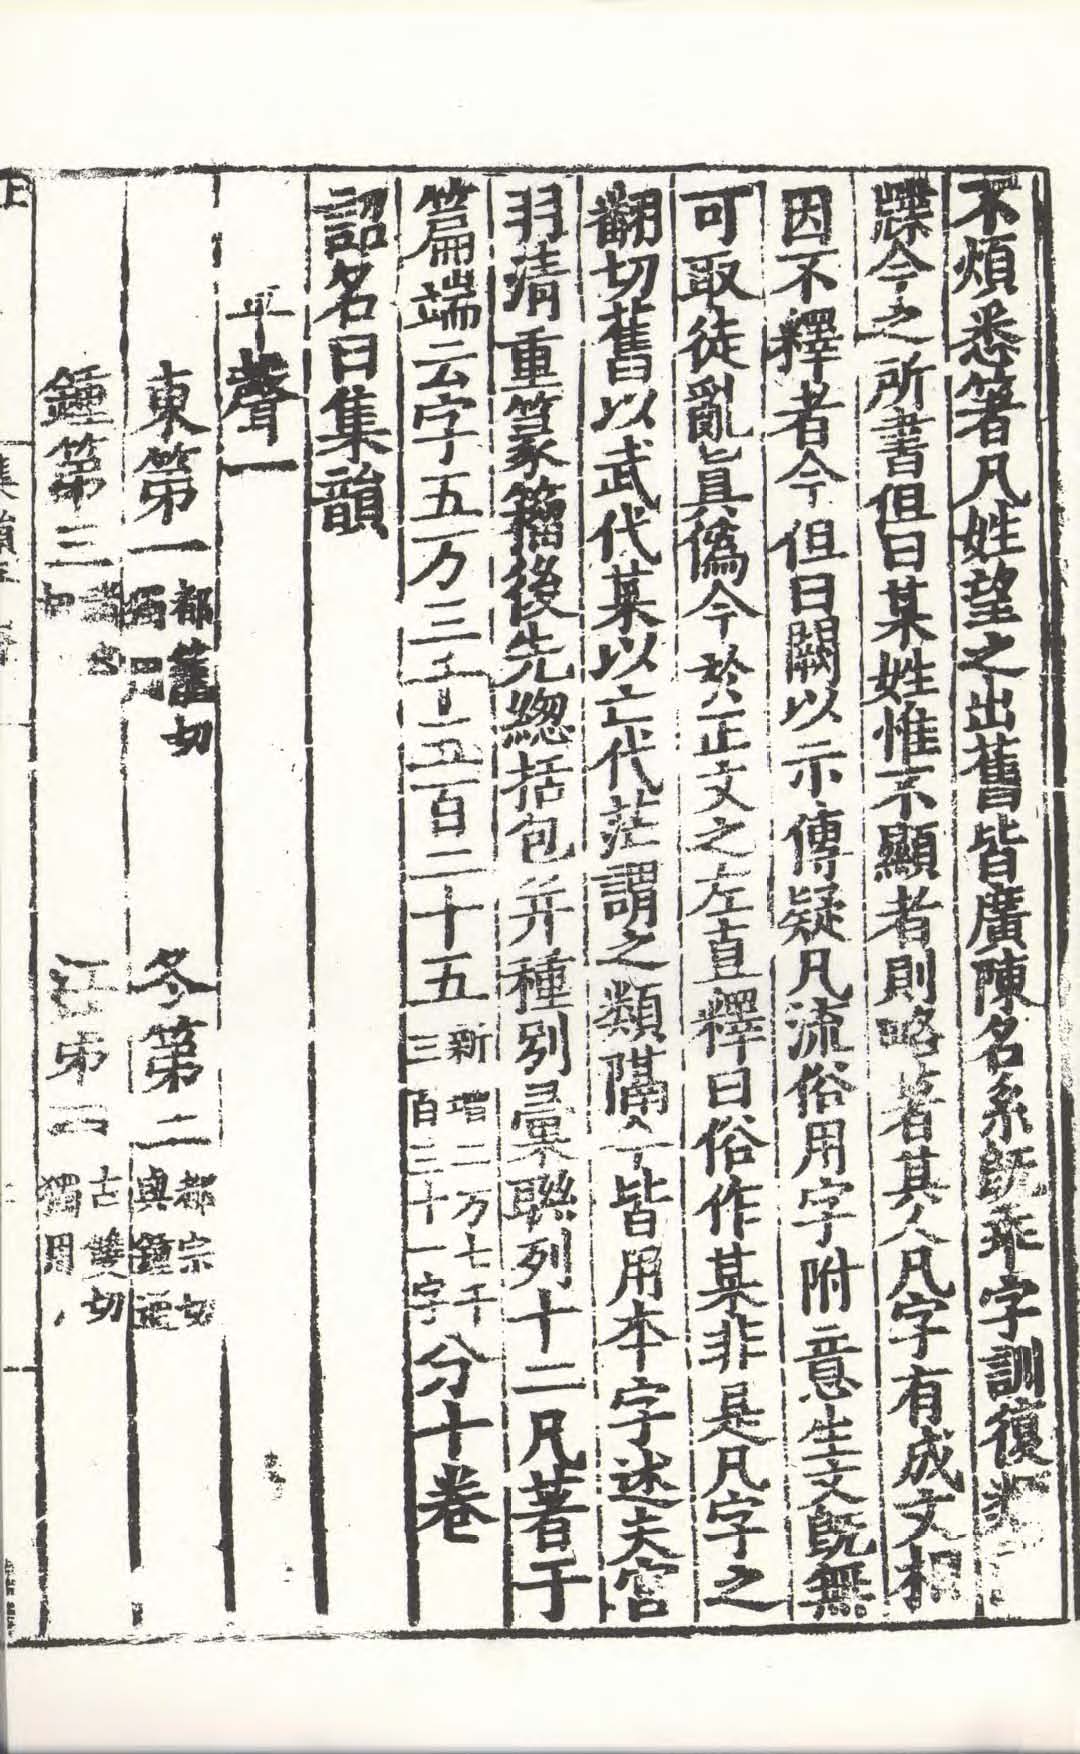 不煩悉箸凡姓望之出舊皆廣陳名系既乖字訓復
牒今之所書但曰某姓惟不顯者則略著其人凡字有成文相
因不釋者今但曰闕以示傳疑凡流俗用字附意生文既無
可取徒亂眞僞今於正文之左直釋曰俗作某非是凡字之
翻切舊以武代某以亡代茫謂之類隔今皆用本字述夫宮
羽清重篆籀後先緫括包并種别彙聯列十二凡著于
篇端云字五万三千五百二十五新增二万七千三百三十一字分十卷
詔名曰集韻
平聲一
東第一 都籠切獨用 冬第二 都宗切與鍾通
鍾第三 江第四 古雙切獨用